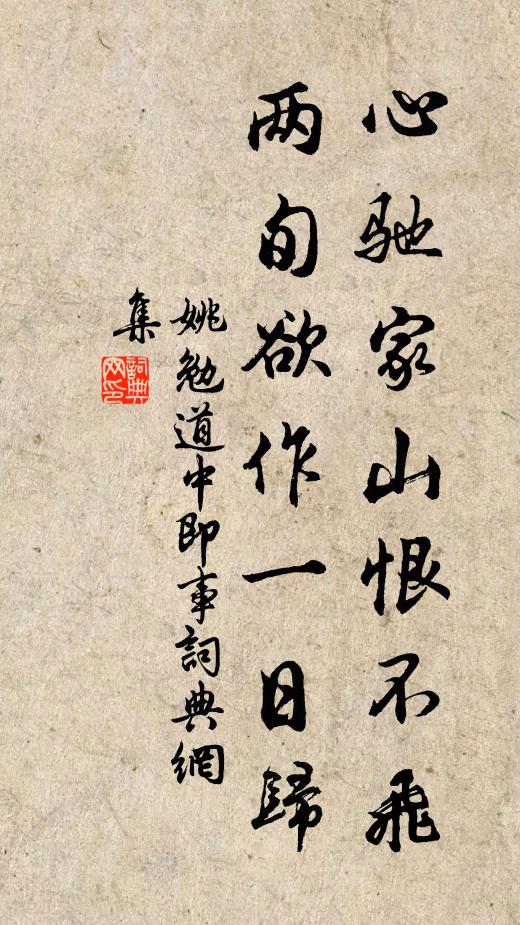 心驰家山恨不飛
两旬欲作一日歸
姚勉道中即事詞典網
集
詞典
网印